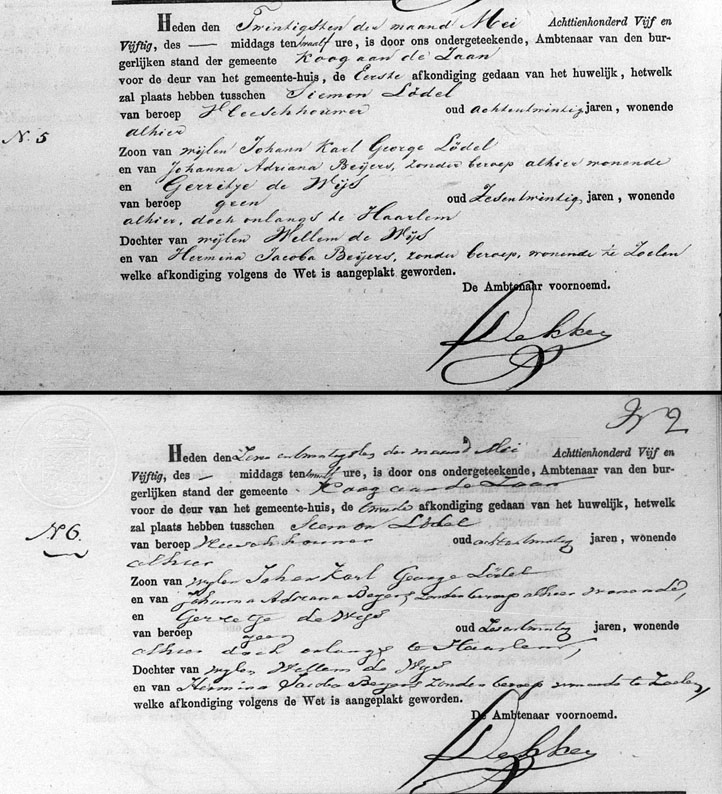 Heden den Twintigsten der maand Mei Achttienhonderd Vijf en
Vijftig, des — middags ten twaalf ure, is door ons ondergeteekende, Ambtenaar van den bur-
gerlijken stand der gemeente Koog aan de Zaan
voor de deur van het gemeente-huis, de Eerste afkondiging gedaan van het huwelijk, hetwelk
zal plaats hebben tusschen Siemon Lödel
van beroep Vleeschhouwer oud achtentwintig jaren, wonende
alhier
N. 5
Zoon van wijlen Johann Karl George Lödel
en van Johanna Adriana Beijers, zonder beroep alhier wonende
en Gerretje de Wijs
van beroep geen oud Zesentwintig jaren, wonende
alhier, doch onlangs te Haarlem
Dochter van wijlen Wellem de Wijs
en van Hermina Jacoba Beijers, zonder beroep, wonende te Zoelen
welke afkondiging volgens de Wet is aangeplakt geworden.
De Ambtenaar voornoemd.
Dekker
No 2
Heden den Zeven entwintigsten der maand Mei Achttienhonderd Vijf en
Vijftig, des — middags ten twaalf ure, is door ons ondergeteekende, Ambtenaar van den bur-
gerlijken stand der gemeente Koog aan de Zaan
voor de deur van het gemeente-huis, de afkondiging gedaan van het huwelijk, hetwelk
zal plaats hebben tusschen Siemon Lödel
N 6.
van beroep Vleeschhouwer oud achtentwintig jaren, wonende
alhier
Zoon van wijlen Johan Karl George Lödel
en van Johanna Adriana Beyers zonder beroep alhier wonende,
en Gerretje de Wijs
van beroep geen oud Zesentwintig jaren, wonende
alhier doch onlangs te Haarlem,
Dochter van wijlen Wellem de Wijs
en van Hermina Jacoba Beyers zonder beroep wonende te Zoelen,
welke afkondiging volgens de Wet is aangeplakt geworden.
De Ambtenaar voornoemd.
Dekker